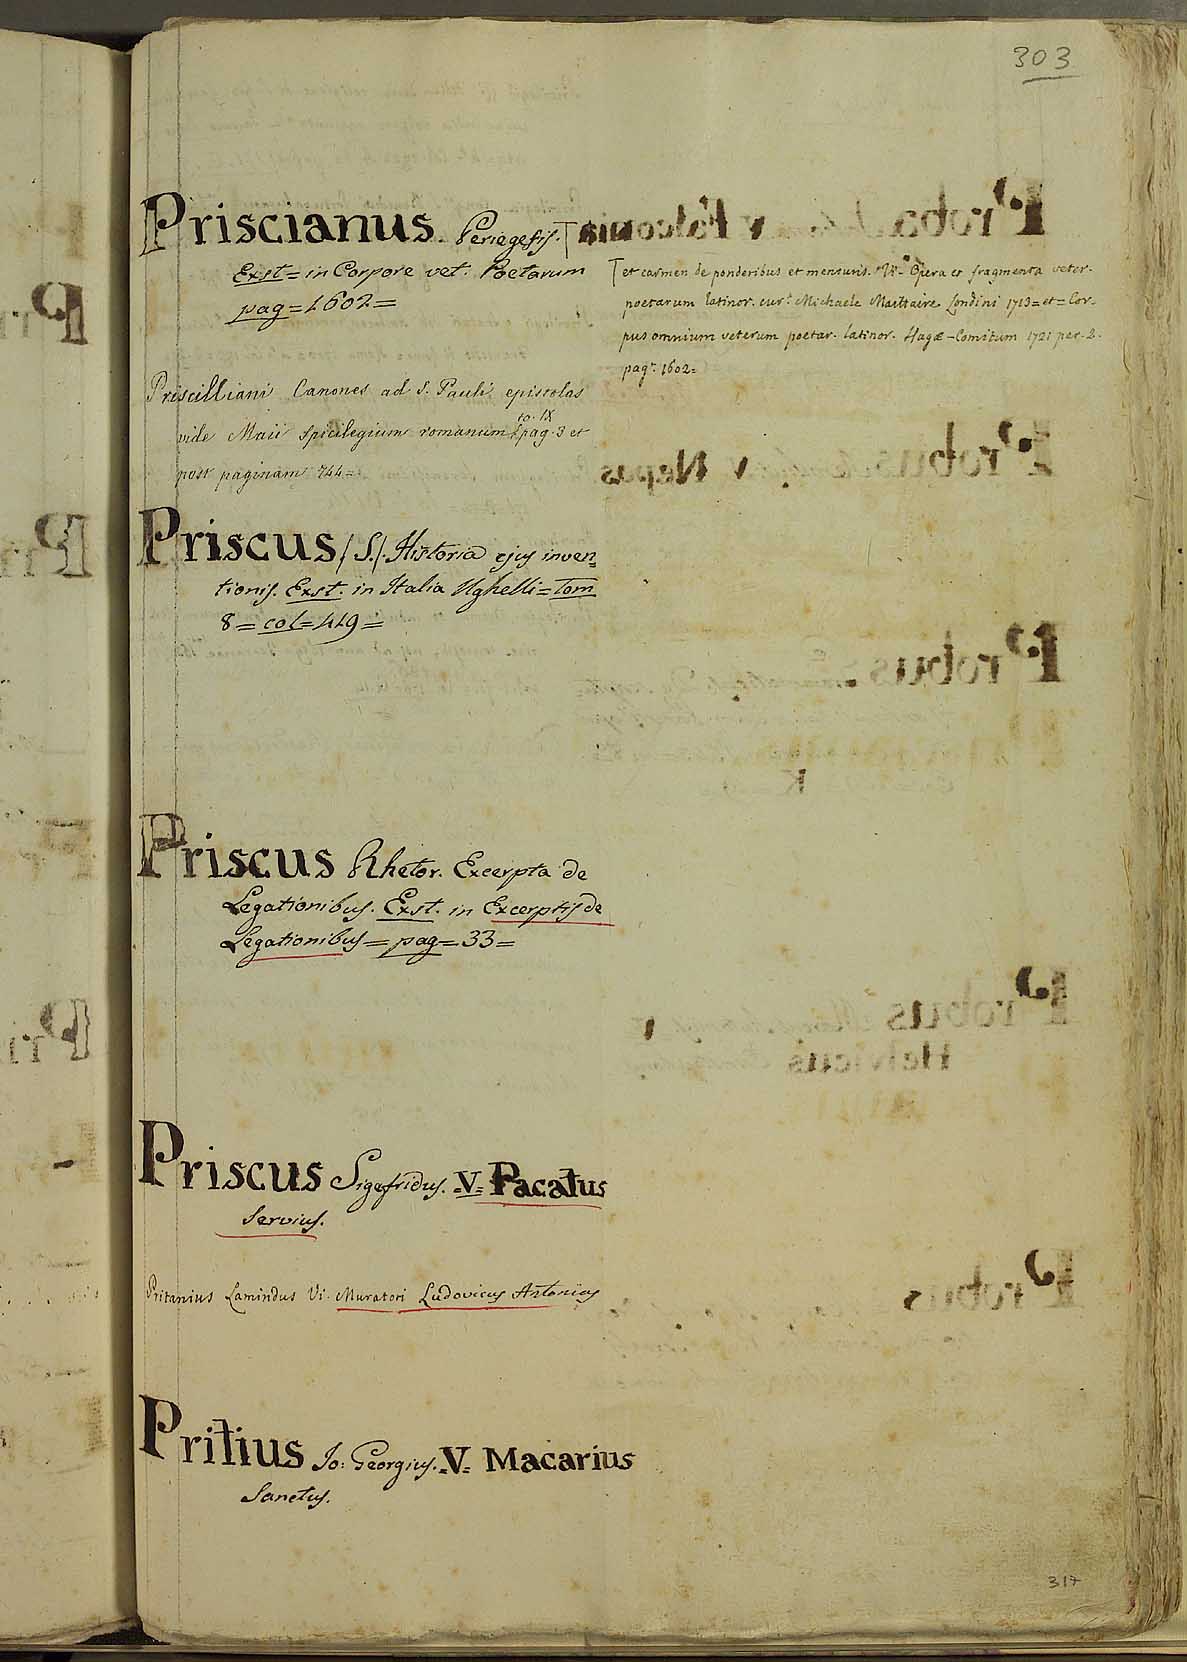 303
Priscianus. Periegesis. T
Exst = in Corpore vet: Poetarum
pag = 1602 =
T et carmen de ponderibus et mensuris. Opera et fragmenta veter.
poetarum latinor. cur.t Michaele Maittaire Londini 1713 = et = Cor-
pus omnium veterum poetar. latinor. Hagæ-Comitum 1721 per. 2.
pag. 1602 =
Priscilliani Canones ad S. Pauli epistolas
vide Maii Spicilegium romanum to. IX pag. 3 et
post paginam 744 =
Priscus /S./. Historia ejus inven=
tionis. Exst. in Italia Ughelli = Tom
8 = col = 419 =
Priscus Rhetor. Excerpta de
Legationibus. Exst. in Excerptis de
Legationibus = pag = 33 =
Priscus Sigefridus. =V= Pacatus
Servius.
Pritanius Lamindus Vi. Muratori Ludovicus Antonius
Pritius Jo: Georgius. =V= Macarius
Sanctus.
317